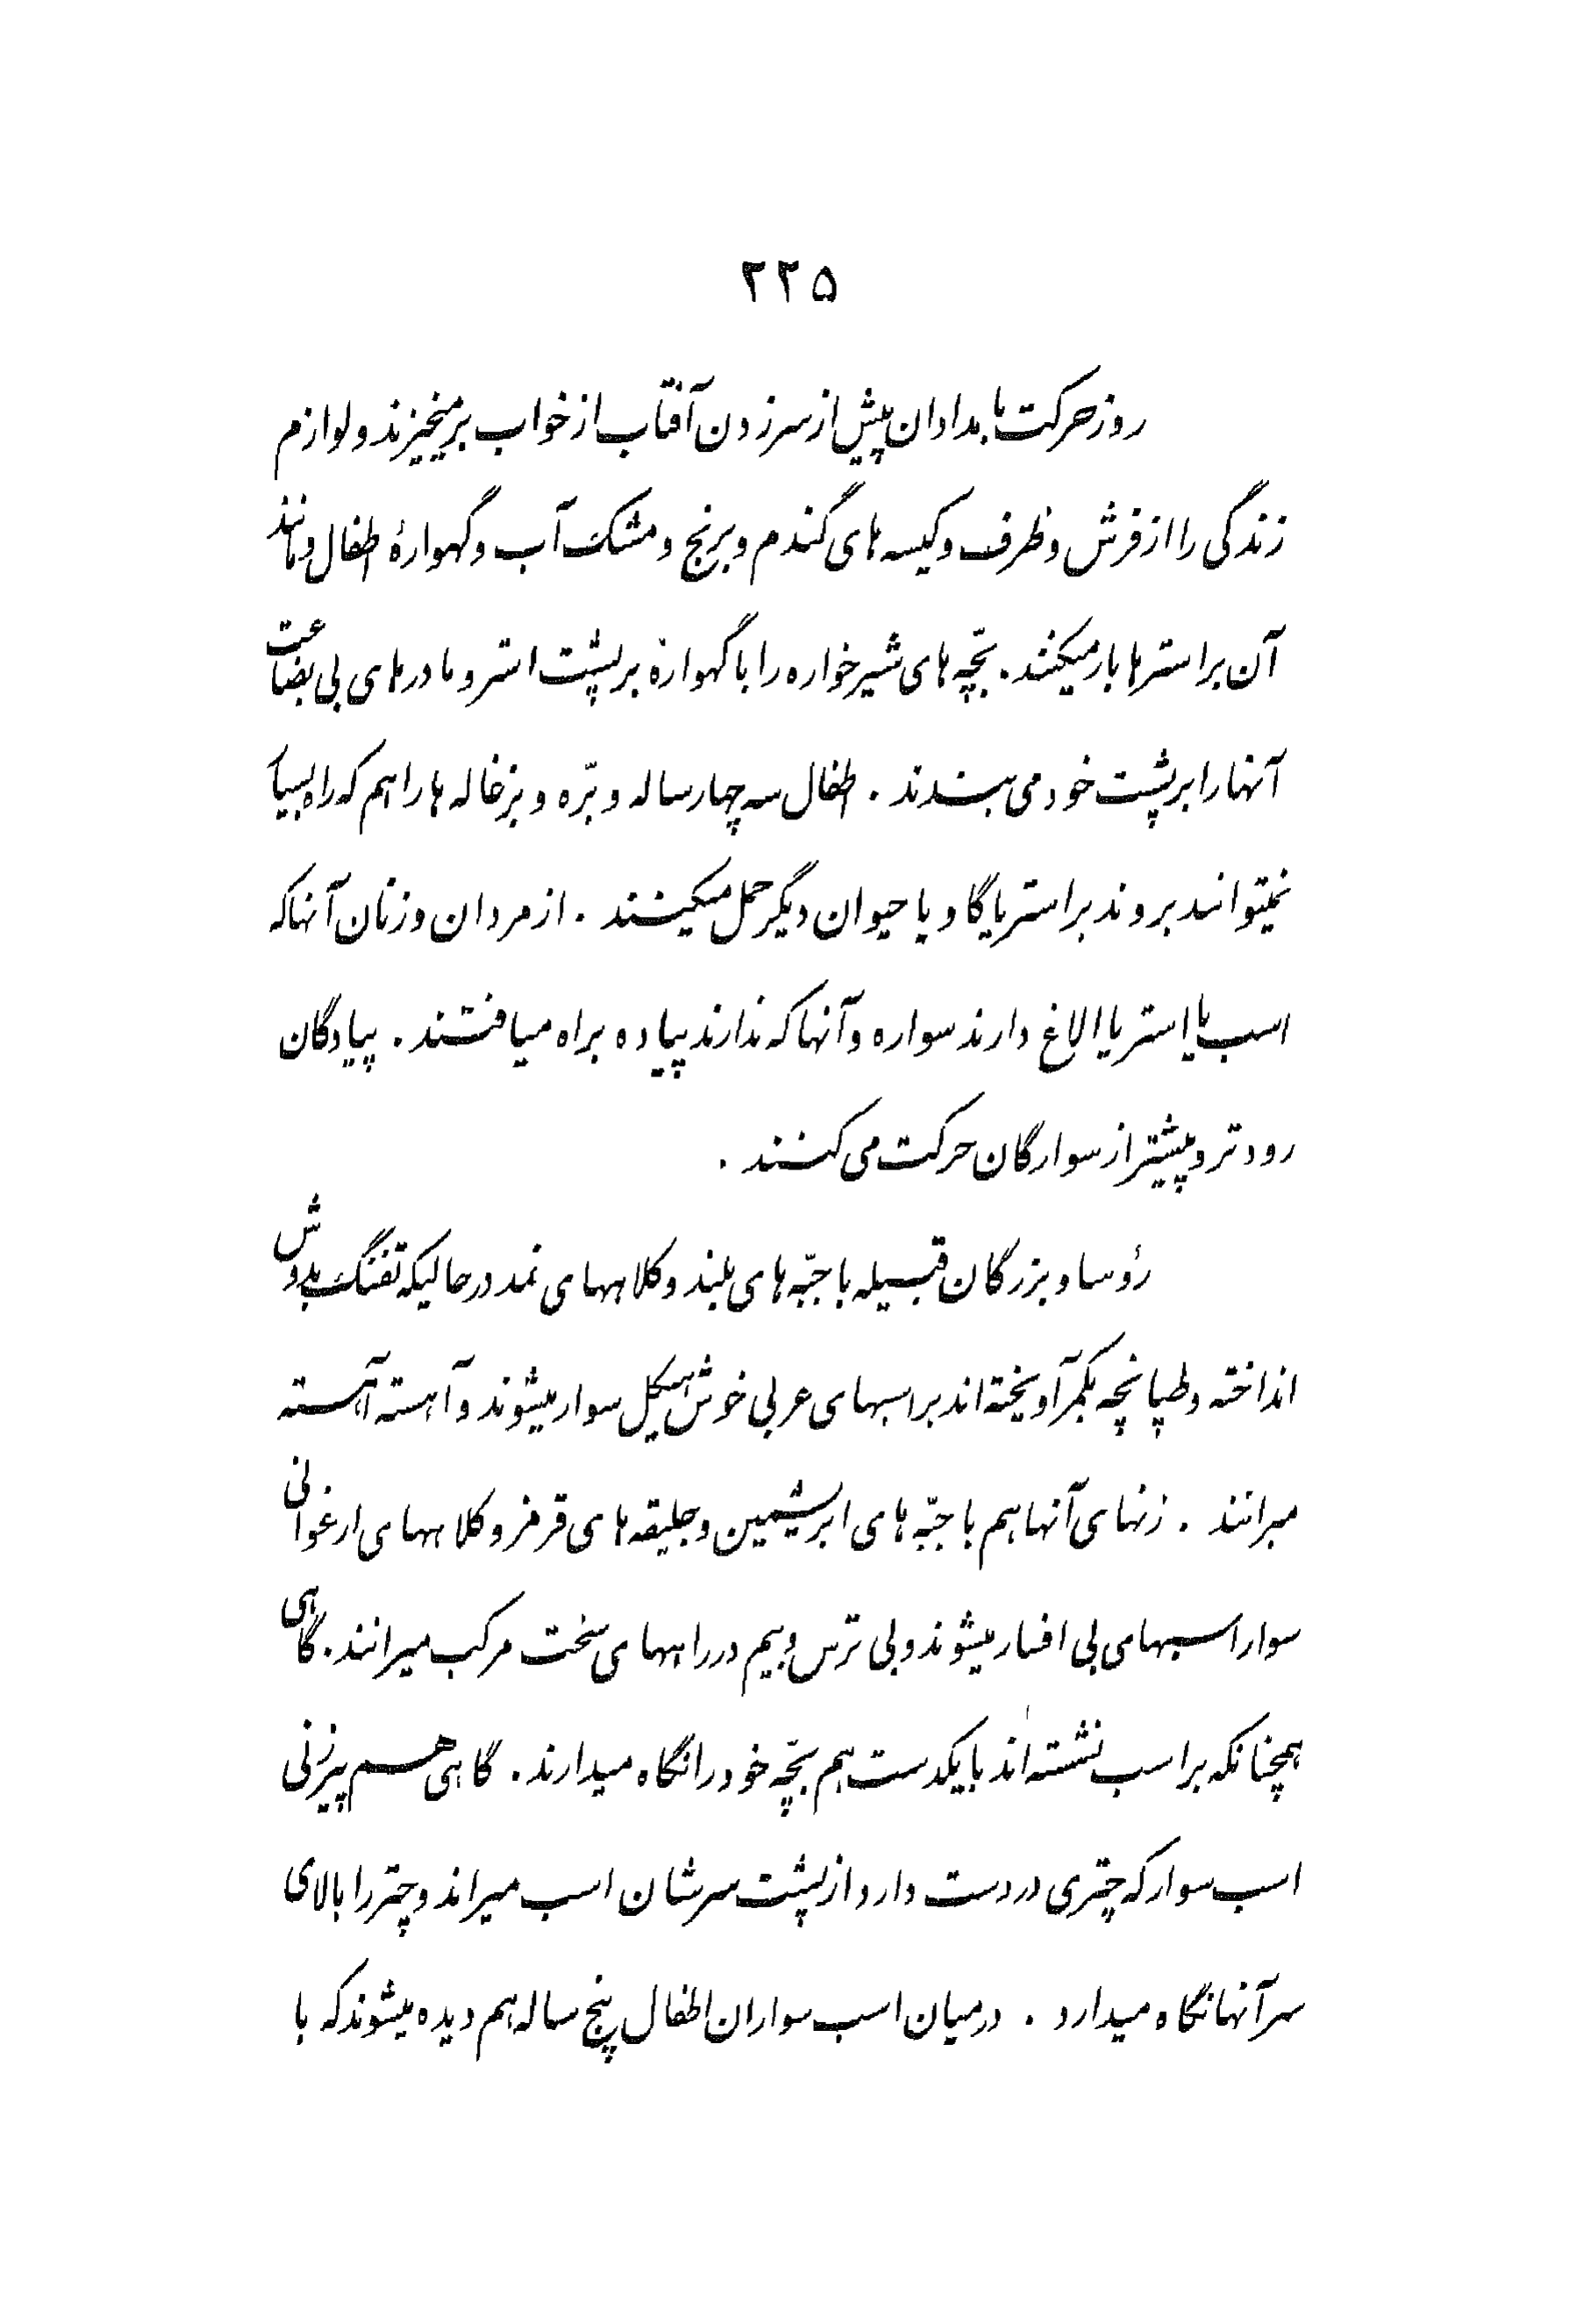 ۲۲۵
روز حرکت بامدادان پیش از سر زدن آفتاب از خواب برمیخیزند و لوازم
زندگی را از فرش و ظرف و کیسه های گندم و برنج و مشک آب و گهوارهٔ طفال و مانند
آن بر استرها بار میکنند. بچّه های شیرخواره را با گهواره بر پشت استر و مادرهای بی بضاعت
آنها را بر پشت خود می بندند . طفال سه چهار ساله و برّه و بزغاله ها را هم که راه بسیا
نمیتوانند بروند بر استر یا گاو یا حیوان دیگر حمل میکنند . از مردان و زنان آنها که
اسب یا استر یا الاغ دارند سواره و آنها که ندارند پیاده براه میافتند . پیادگان
رودتر و پیشتر از سوارگان حرکت می کنند .
رؤسا و بزرگان قبیله با جبّه های بلند و کلاههای نمد در حالیکه تفنگ بدوش
انداخته و طپانچه بکمر آویخته اند بر اسبهای عربی خوش هیکل سوار میشوند و آهسته آهسته
میرانند . زنهای آنها هم با جبّه های ابریشمین و جلیقه های قرمز و کلاههای ارغوانی
سوار اسبهای بی افسار میشوند و بی ترس و بیم در راههای سخت مرکب میرانند . گاهی
همچنانکه بر اسب نشسته اند با یکدست هم بچّه خود را نگاه میدارند . گاهی هم پیرزنی
اسب سوار که چتری در دست دارد از پشت سرشان اسب میراند و چتر را بالای
سر آنها نگاه میدارد . در میان اسب سواران اطفال پنج ساله هم دیده میشوند که با